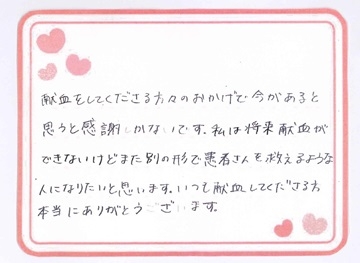 献血をしてくださる方々のおかげで今があると
思うと感謝しかないです。私は将来献血が
できないけどまた別の形で患者さんを救えるような
人になりたいと思います。いつも献血してくださる方
本当にありがとうございます。